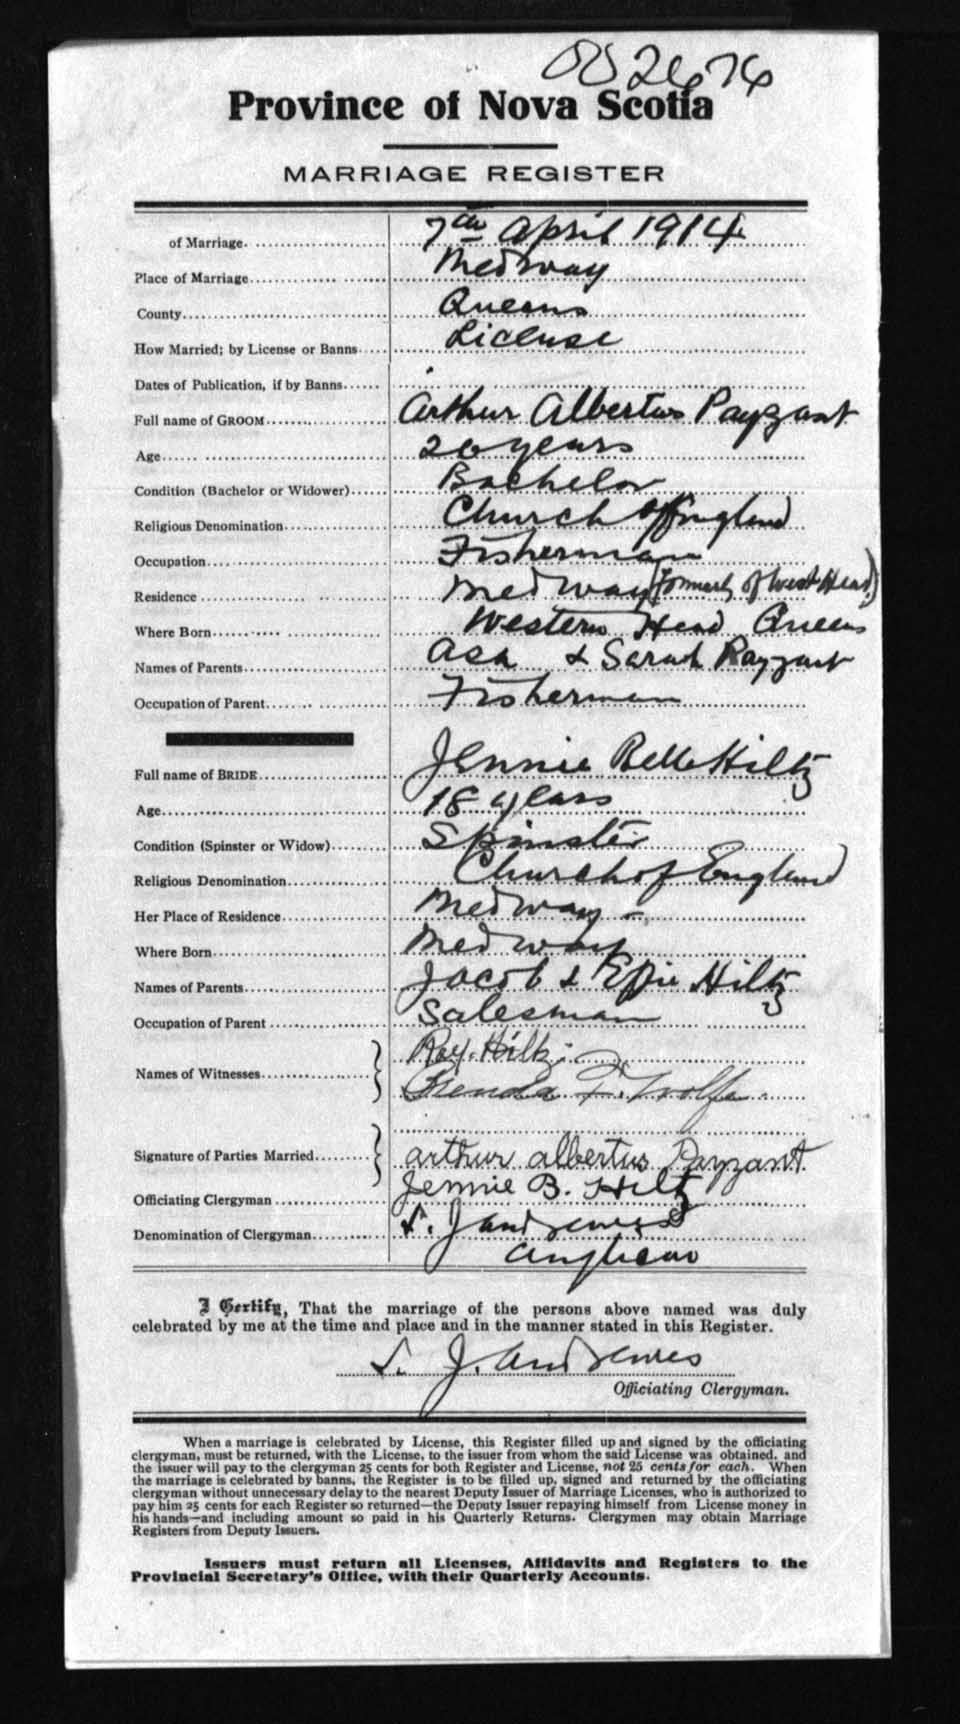 002676
Province of Nova Scotia
MARRIAGE REGISTER
of Marriage. 7th April 1914
Place of Marriage Medway
County Queens
How Married; by License or Banns License
Dates of Publication, if by Banns
Full name of GROOM Arthur Albertus Payzant
Age 26 years
Condition (Bachelor or Widower) Bachelor
Religious Denomination Church of England
Occupation Fisherman
Residence Medway (formerly of West Head)
Where Born Western Head Queens
Names of Parents Asa & Sarah Payzant
Occupation of Parent Fisherman
Full name of BRIDE Jennie Belle Hiltz
Age 18 years
Condition (Spinster or Widow) Spinster
Religious Denomination Church of England
Her Place of Residence Medway -
Where Born Medway
Names of Parents Jacob & Effie Hiltz
Occupation of Parent Salesman
Names of Witnesses Roy Hiltz
F. Wolfe
Signature of Parties Married arthur albertus Payzant
Jennie B. Hiltz
Officiating Clergyman J. Andrewes
Denomination of Clergyman Anglican
I Certify, That the marriage of the persons above named was duly
celebrated by me at the time and place and in the manner stated in this Register.
J. Andrewes
Officiating Clergyman.
When a marriage is celebrated by License, this Register filled up and signed by the officiating
clergyman, must be returned, with the License, to the issuer from whom the said License was obtained, and
the issuer will pay to the clergyman 25 cents for both Register and License, not 25 cents for each. When
the marriage is celebrated by banns, the Register is to be filled up, signed and returned by the officiating
clergyman without unnecessary delay to the nearest Deputy Issuer of Marriage Licenses, who is authorized to
pay him 25 cents for each Register so returned—the Deputy Issuer repaying himself from License money in
his hands—and including amount so paid in his Quarterly Returns. Clergymen may obtain Marriage
Registers from Deputy Issuers.
Issuers must return all Licenses, Affidavits and Registers to the
Provincial Secretary's Office, with their Quarterly Accounts.